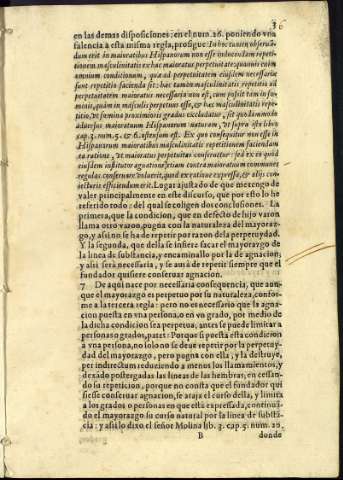 36
en las demas disposiciones: en el num. 26. poniendo vna
falencia à esta misma regla, prosigue In hoc tamen obseruã-
dum erit in maioratibus Hispanorum non esse inducendam repeti-
tionem masculinitatis ex hac maioratus perpetuitate: quamuis enim
omnium conditionum, qua ad perpetuitatem eiusdem necessariæ
sunt repetitio facienda sit: hæc tamen masculinitatis repetitio ad
perpetuitatem maioratus necessaria non est, cum possit tam in fœ-
minis, quàm in masculis perpetuus esse, & hæc masculinitatis repe-
titio, vt fœmina proximioris gradus excludatur, sit quodammodo
aduersus maioratuum Hispanorum naturam, vt supra isto libro
cap. 3. num. 5. & 6. ostensum est. Ex quo consequitur non esse in
Hispanorum maioratibus masculinitatis repetitionem faciendam
ea ratione, vt maioratus perpetuitas conseruetur: sed ex eo quòd
eiusdem institutor agnationẽ etiam contra maioratuum communes
regulas conseruare voluerit, quod ex natiuæ expressa, & alijs con-
iecturis efficiendum erit. Lugar ajustado de que me tengo de
valer principalmente en este discurso, que por esso lo he
referido todo: del qual se coligen dos conclusiones. La
primera, que la condicion, que en defecto de hijo varon
llama otro varon, pugna con la naturaleza del mayoraz-
go, y assi no se ha de repetir por razon de la perpetuydad.
Y la segunda, que della se infiere sacar el mayorazgo de
la linea de substancia, y encaminallo por la de agnacion;
y assi serà necessaria, y se aurà de repetir siempre que el
fundador quisiere conseruar agnacion.
7 De aqui nace por necessaria consequencia, que aun-
que el mayorazgo es perpetuo por su naturaleza, confor-
me a la tercera regla: pero no es necessario que la agna-
cion puesta en vna persona, o en vn grado, por medio de
la dicha condicion sea perpetua, antes se puede limitar a
personas o grados, patet: Porque si puesta esta condicion
a vna persona, no solo no se deue repetir por la perpetuy-
dad del mayorazgo, pero pugna con ella; y la destruye,
per indirectum reduziendo a menos los llamamientos, y
dexãdo postergadas las lineas de las hembras, en cessan-
do su repeticion, porque no consta que el fundador qui-
siesse conseruar agnacion, se ataja el curso della, y limita
a los grados o personas en que està expressada, continuã-
do el mayorazgo su curso natural por la linea de substã-
cia: y assi lo dixo el señor Molina lib. 3. cap. 5. num. 20.
B donde